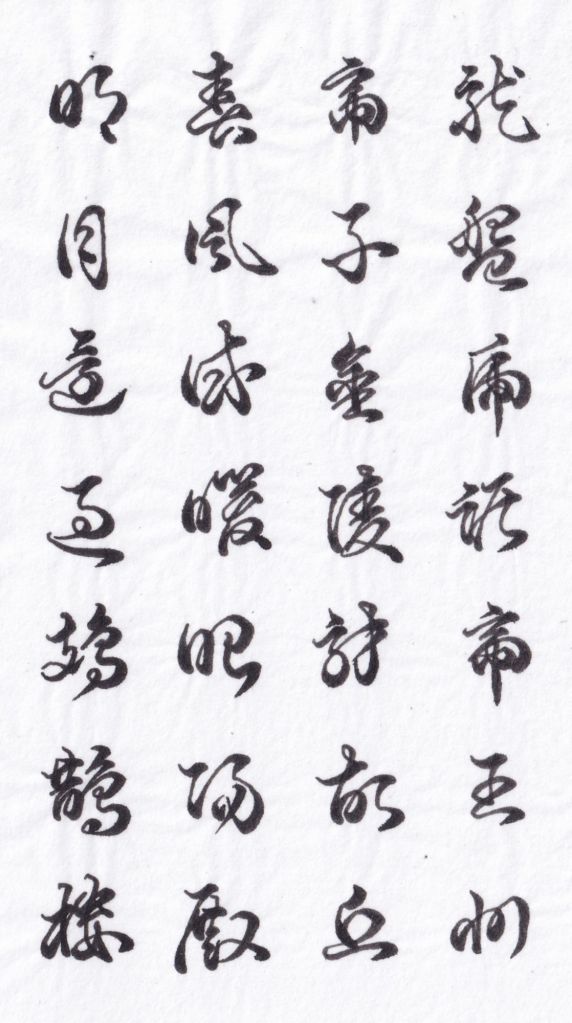 龍盤虎踞帝王州
帝子金陵訪故丘
春風試暖昭陽殿
明月還過鳷鵲樓